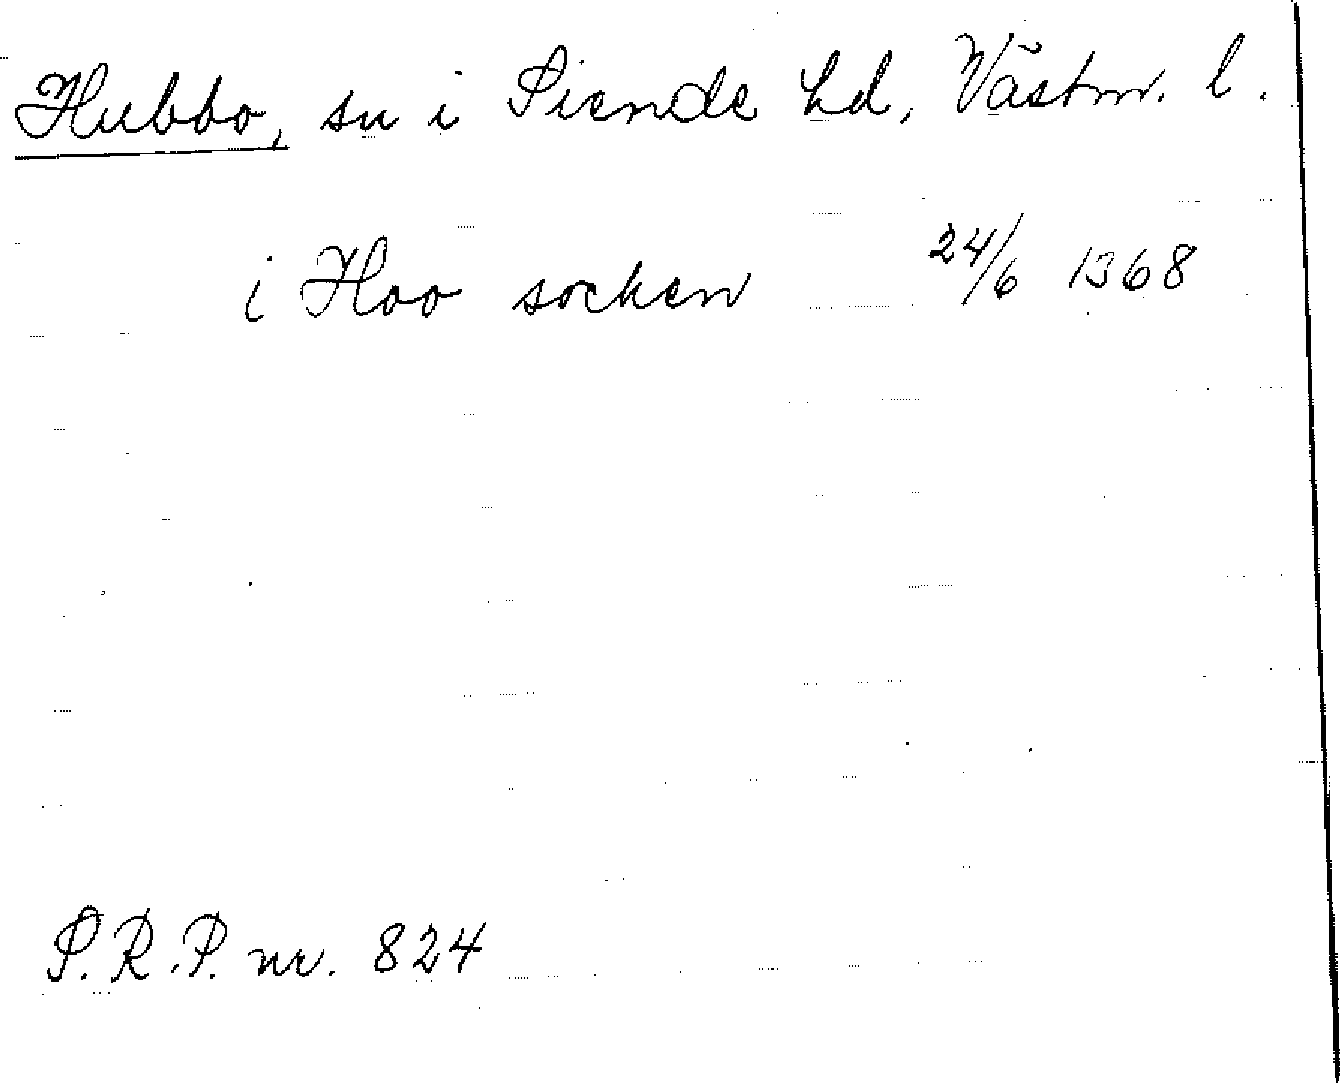 Hubbo, sn i Siende hd, Västm. l.
i Hoo socken 24/6 1368
S.R.P. nr. 824